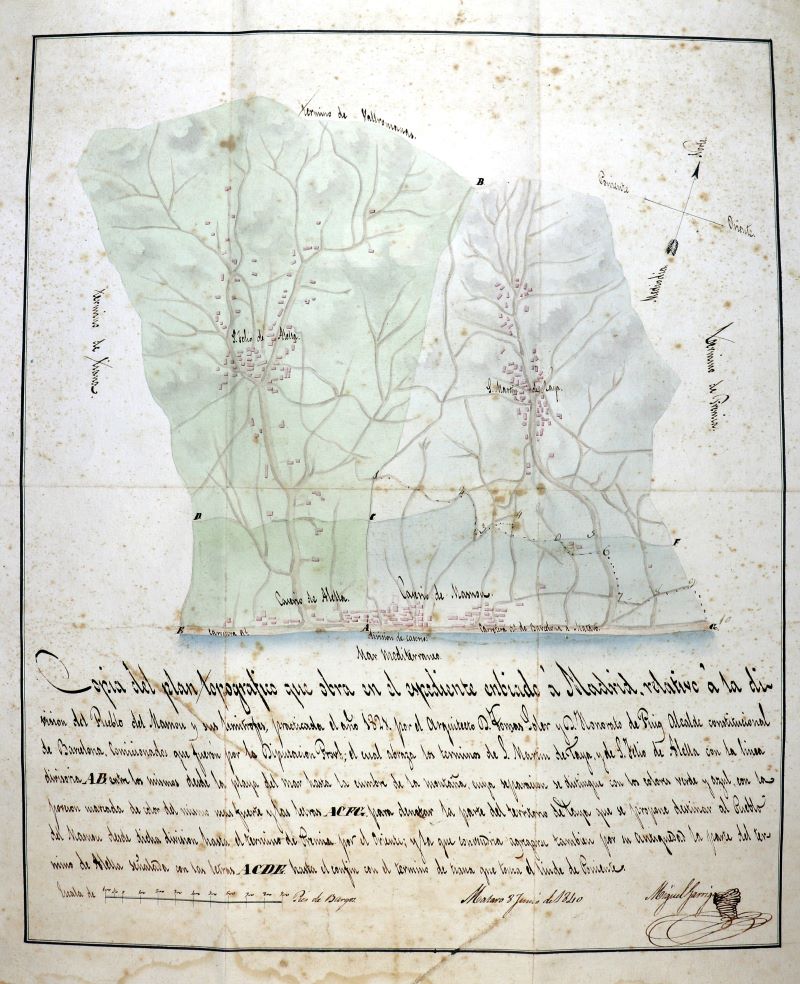 Termino de Vallromanas.
B
Norte
Poniente
Oriente
Mediodia
Termino de Tiana.
Termino de Premiá.
S. Felio de Alella.
S. Martin de Tayá.
1
2
3
4
5
6
7
8
9
10
D
C
F
Caserio de Alella.
Caserio de Masnou
E
Carretera Rl.
A
Division de Caserios.
Carretera Rl. de Barcelona á Mataró.
G
Mar Mediterraneo.
Copia del plan topografico que obra en el espediente enbiado á Madrid, relativo á la di-
vision del Pueblo del Masnou y sus limitrofes, practicada el año 182 por el Arquitecto D. Tomas Soler y D. Honorato de Puig Alcalde constitucional
de Barcelona, Comisionados que fueron por la Diputacion Provl; el cual abraza los terminos de S. Martin de Tayá, y de S. Felio de Alella con la linea
divisoria AB entre los mismos desde la playa del mar hasta la cumbre de la montaña, cuya separacion se distingue con los colores verde y azul, con la
porcion marcada de color del mismo mas fuerte y las letras ACFG, para denotar la parte del territorio de Tayá que se propone destinar al Pueblo
del Masnou desde dicha division hasta el termino de Premiá por el Oriente; y la que convendria agregarse tambien por su antiguedad la parte del ter-
mino de Alella señalada con las letras ACDE hasta el confin con el termino de tiana que toca el linde de Poniente.
Escala de Pies de Burgos
Mataro 8 Junio de 1840
Miguel Garriga